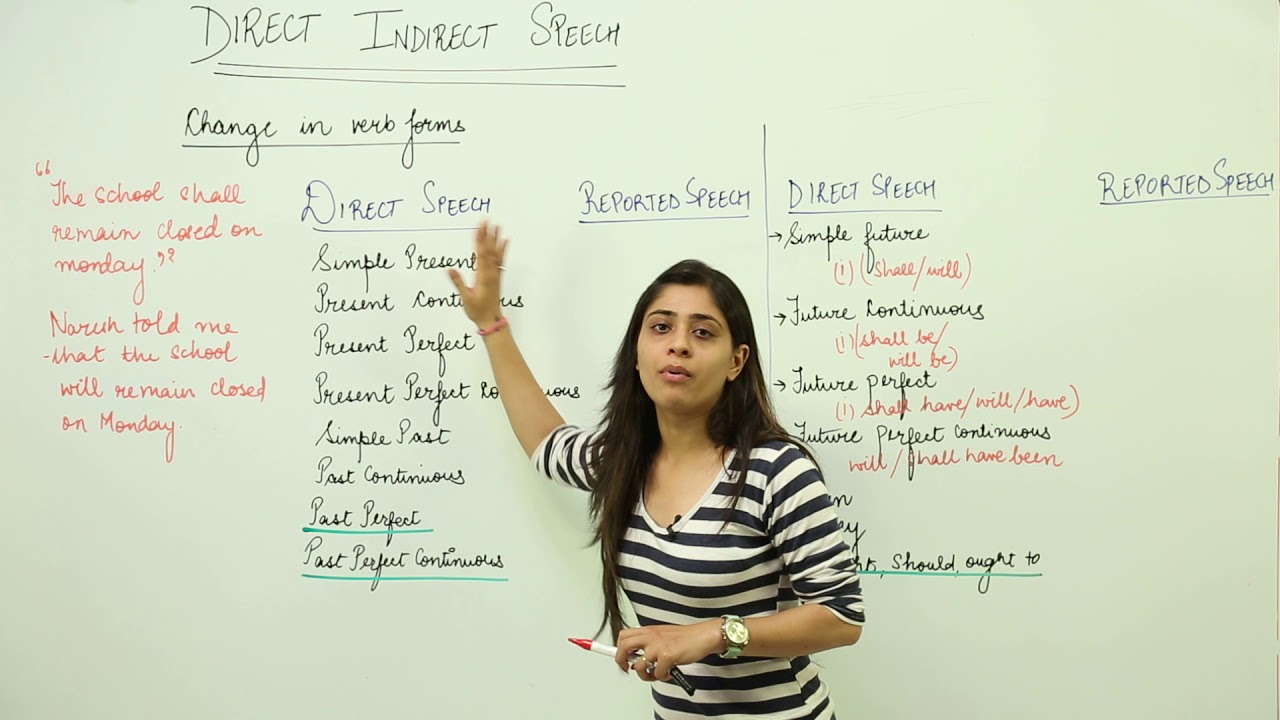 DIRECT INDIRECT SPEECH
Change in verb forms
“The school shall
remain closed on
monday.”
Naresh told me
that the school
will remain closed
on Monday.
DIRECT SPEECH
Simple Present
Present Continuous
Present Perfect
Present Perfect
Simple Past
Past Continuous
Past Perfect
Past Perfect Continuous
REPORTED SPEECH
DIRECT SPEECH
→ Simple future
(i) (shall/will)
→ Future Continuous
(i) (shall be/
will be)
→ Future perfect
(i) shall have/will/have)
Future perfect continuous
will / shall have been
Should, ought to
REPORTED SPEECH